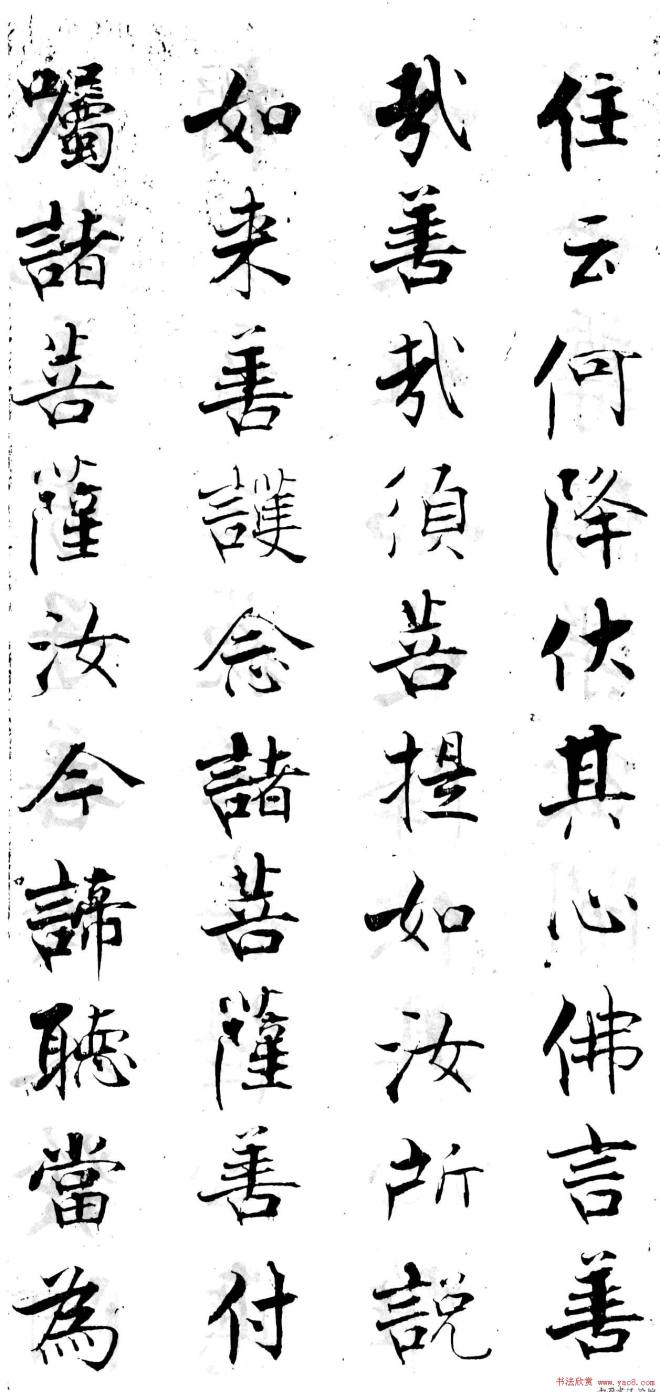 住云何降伏其心佛言善
哉善哉須菩提如汝所說
如来善護念諸菩薩善付
囑諸菩薩汝今諦聽當為
书法欣赏 www.yac8.com